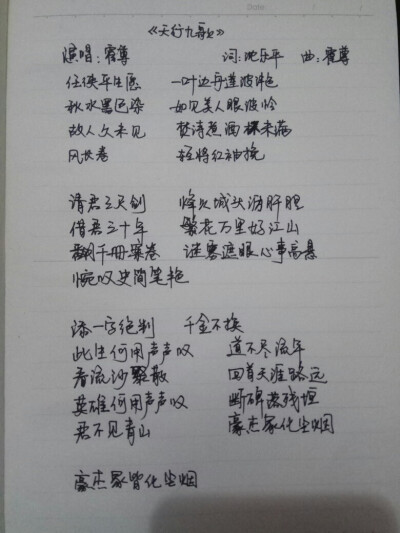 《天行九歌》
演唱：霍尊 词：沈乐平 曲：霍尊
任侠平生愿 一叶边舟莲波滟
秋水墨色染 一如见美人眼波怜
故人久未见 焚诗煮酒杯未满
风长卷 轻将红袖挽
请君三尺剑 烽火城头沥肝胆
借君三十年 繁花万里好江山
翻千册案卷 迷雾遮眼心事高悬
惋叹史简笔艳
添一字绝判 千金不换
此生何用声声叹 道不尽流年
看流沙聚散 回首天涯路远
英雄何用声声叹 断碑葬残垣
君不见青山 豪杰冢化尘烟
豪杰冢皆化尘烟